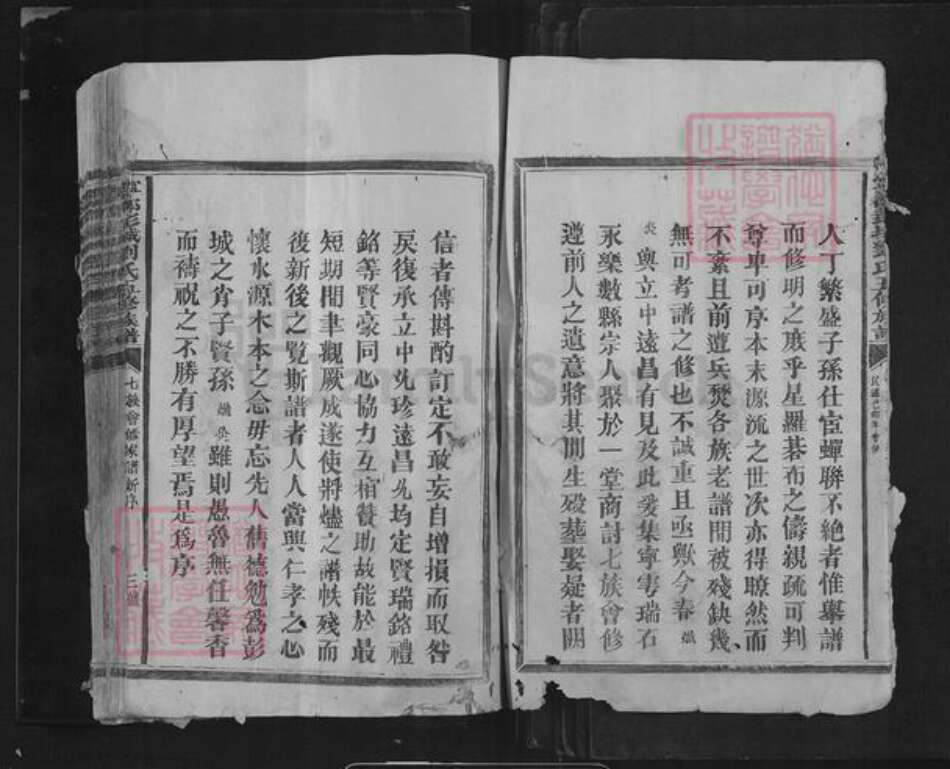 人丁繁盛子孫仕宦蟬聯不絶者惟舉譜
而修明之庶乎星羅碁布之儔親疏可判
尊卑可序本末源流之世次亦得瞭然而
不紊且前遭兵燹各族老譜間被殘缺幾
無可考譜之修也不誠重且亟歟今春
與立中遠昌有見及此爰集寧雩瑞石
永樂數縣宗人聚於一堂商討七族會修
遵前人之遺意將其間生殁塟娶疑者闕
信者傳斟酌訂定不敢妄自增損而取咎
戾復承立中允珍遠昌允均定賢瑞銘禮
銘等賢豪同心協力互相贊助故能於最
短期間聿觀厥成遂使將燼之譜帙殘而
後新後之覽斯譜者人人當興仁孝之心
懷水源木本之念毋忘先人舊德勉為彭
城之肖子賢孫 雖則愚魯無任馨香
而禱祝之不勝有厚望焉是為序
劉氏五修族譜
七族會修家譜新序
三